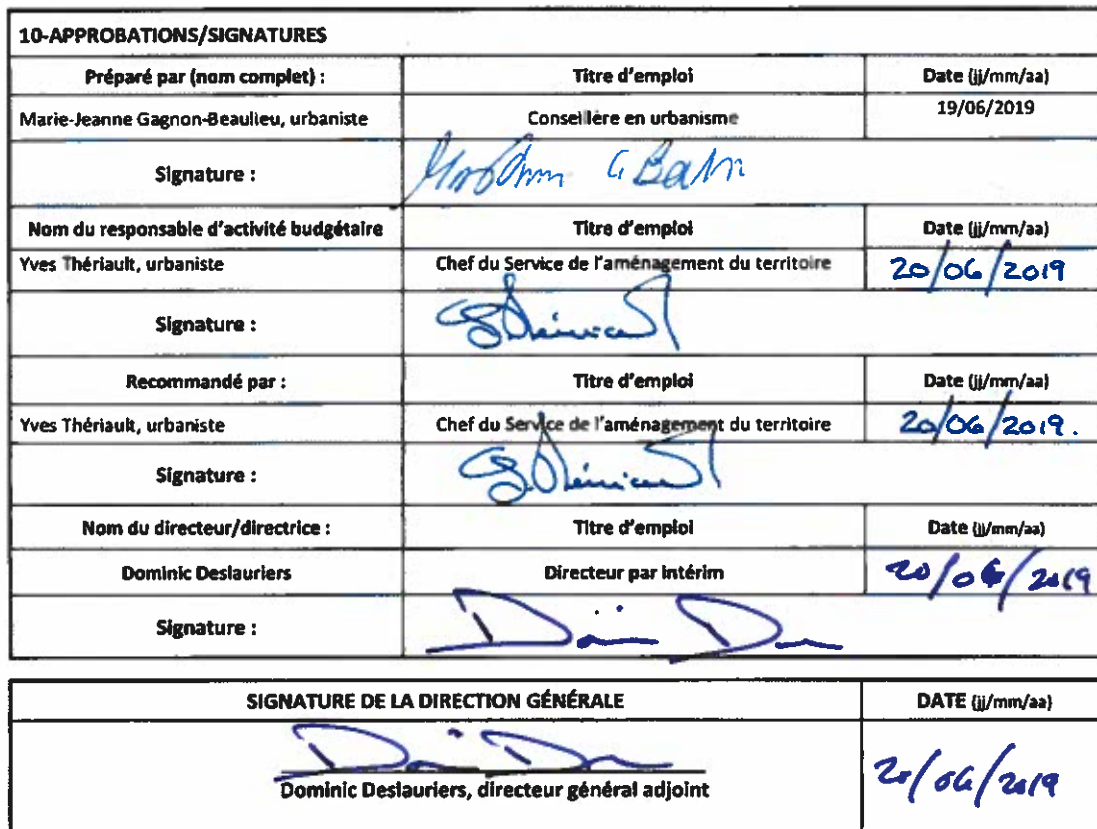 10-APPROBATIONS/SIGNATURES
Préparé par (nom complet) : Titre d'emploi Date (jj/mm/aa)
Marie-Jeanne Gagnon-Beaulieu, urbaniste Conseillère en urbanisme 19/06/2019
Signature :
Nom du responsable d'activité budgétaire Titre d'emploi Date (jj/mm/aa)
Yves Thériault, urbaniste Chef du Service de l'aménagement du territoire 20/06/2019
Signature :
Recommandé par : Titre d'emploi Date (jj/mm/aa)
Yves Thériault, urbaniste Chef du Service de l'aménagement du territoire 20/06/2019.
Signature :
Nom du directeur/directrice : Titre d'emploi Date (jj/mm/aa)
Dominic Deslauriers Directeur par intérim 20/06/2019
Signature :
SIGNATURE DE LA DIRECTION GÉNÉRALE DATE (jj/mm/aa)
Dominic Deslauriers, directeur général adjoint 20/06/2019